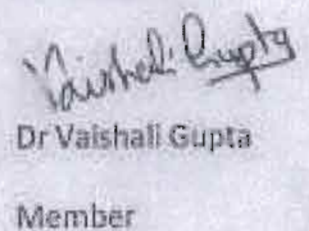 Vaishali Gupta
Dr Vaishali Gupta
Member